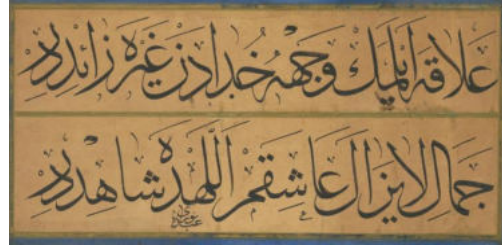 علاقه ايلمك وجه خدادن غيره زائددر
جمال لايزال عاشقم اللهده شاهددر